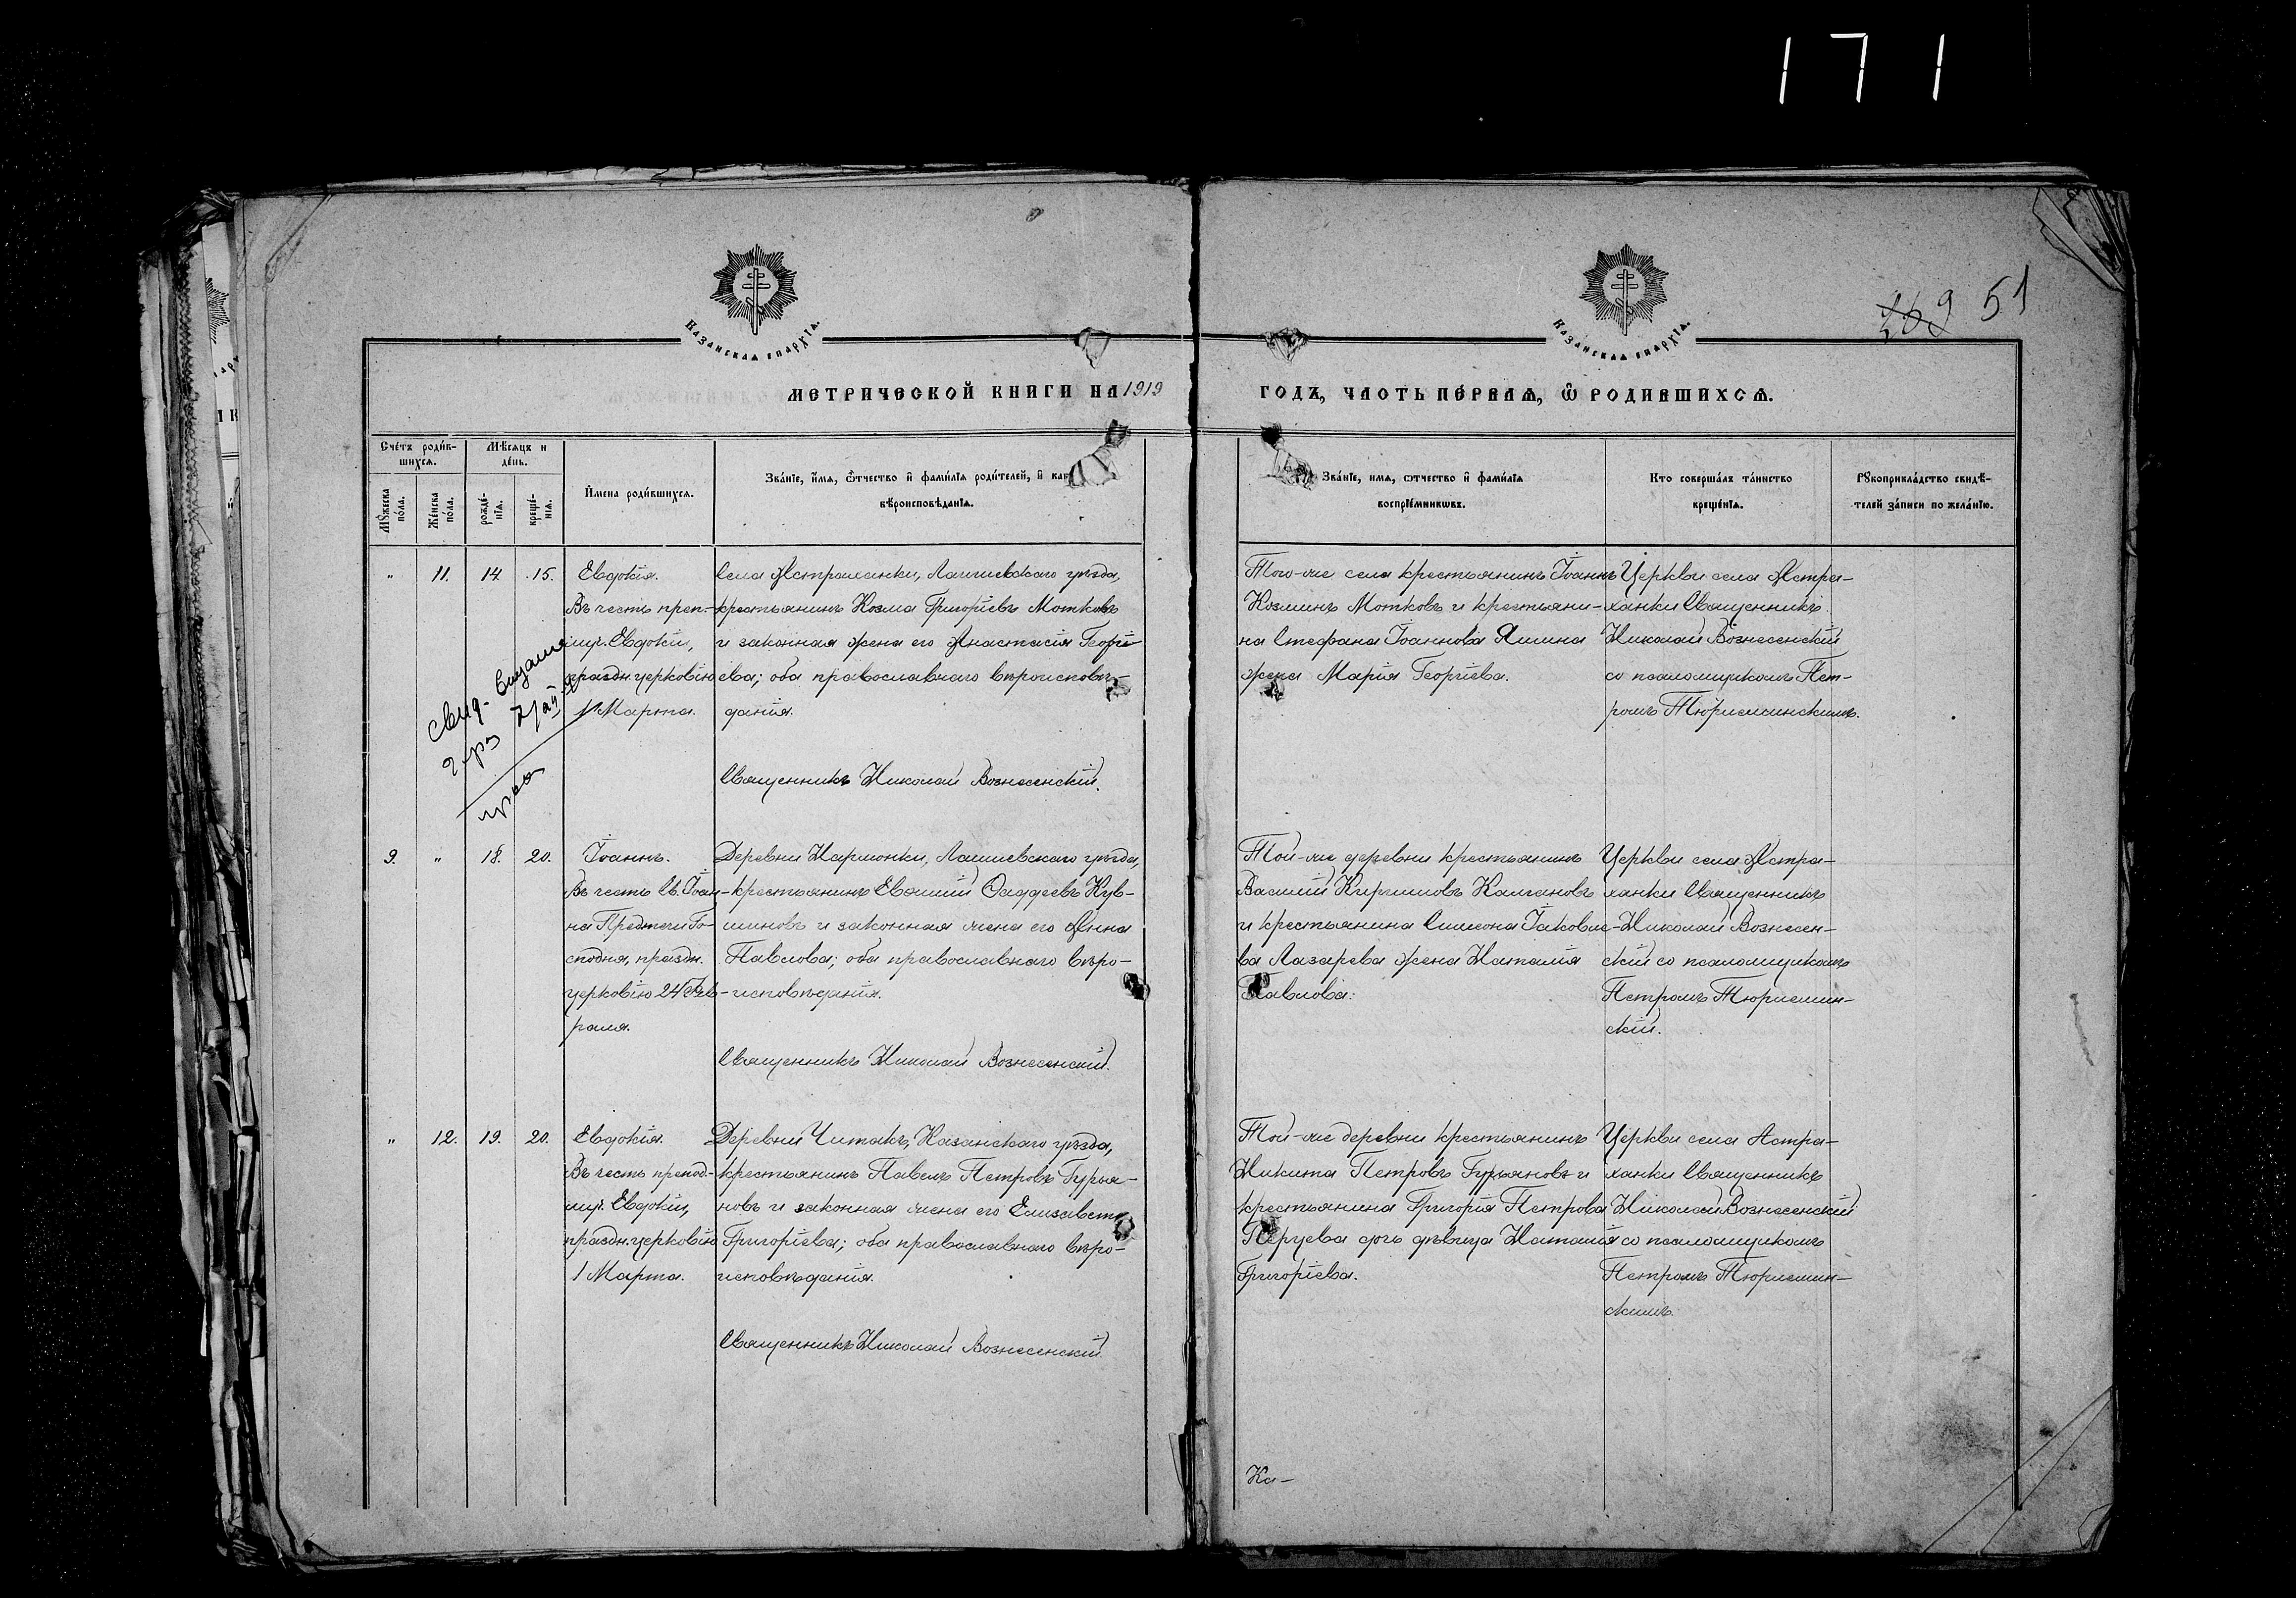 171
269 51
Казанская епархїѧ.
Казанская епархїѧ.
МЕТРИЧЕСКОЙ КНИГИ НА 1919
ГОДЪ, ЧАСТЬ ПЕ́РВАѦ, Ѽ РОДИВШИХСѦ.
Сче́тъ роди́в-
шихсѧ.
Мѣ́сѧцъ и
де́нь.
Мꙋ́жеска
по́ла.
Же́нска
по́ла.
рожде́-
нїѧ.
креще́-
нїѧ.
И҆мена роди́вшихсѧ.
Зва́нїе, и҆́мѧ, ѻ҆́тчество и҆ фами́лїѧ роди́телей, и҆ как
вѣроисповѣ́данїѧ.
Зва́нїе, имѧ, ѻтчество и҆ фами́лїѧ
воспрїе́мникѡвъ.
Кто соверша́лъ та́инство
креще́нїѧ.
Рꙋкоприкла́дство свидѣ́-
телей за́писи по жела́нїю.
" 11. 14. 15.
Евдокія.
Въ честь преп.-
муч. Евдокіи,
праздн. церковію
1 Марта.
Села Астраханки, Лаишевскаго уѣзда,
крестьянинъ Козма Григорьевъ Мотковъ
и законная жена его Анастасія Георгі-
ева; оба православнаго вѣроисповѣ-
данія.
Священникъ Николай Вознесенскій.
Того-же села крестьянинъ Іоаннъ
Козминъ Мотковъ и крестьяни-
на Стефана Іоаннова Яшина
жена Марія Георгіева.
Церкви села Астра-
ханки Священникъ
Николай Вознесенскій
со псаломщикомъ Пет-
ромъ Тюрнеминскимъ.
свид.
2-ра
9. " 18. 20.
Іоаннъ.
Въ честь Св. Іоан-
на Предтечи Го-
сподня, праздн.
церковію 24 Фев-
раля.
Деревни Нармонки, Лаишевскаго уѣзда,
крестьянинъ Евѳимій Ѳаддеевъ Кув-
шиновъ и законная жена его Анна
Павлова; оба православнаго вѣро-
исповѣданія.
Священникъ Николай Вознесенскій.
Той-же деревни крестьянинъ
Василій Кирилловъ Калгановъ
и крестьянина Симеона Іаковле-
ва Лазарева жена Наталія
Павлова.
Церкви села Астра-
ханки Священникъ
Николай Вознесен-
скій со псаломщикомъ
Петромъ Тюрнемин-
скій.
" 12. 19. 20.
Евдокія.
Въ честь препод.-
муч. Евдокіи,
праздн. церковію
1 Марта.
Деревни Читакъ, Казанскаго уѣзда,
крестьянинъ Павелъ Петровъ Гурья-
новъ и законная жена его Елисавета
Григоріева; оба православнаго вѣро-
исповѣданія.
Священникъ Николай Вознесенскій.
Той-же деревни крестьянинъ
Никита Петровъ Гурьяновъ и
крестьянина Григорія Петрова
дочь дѣвица Наталія
Григоріева.
Церкви села Астра-
ханки Священникъ
Николай Вознесенскій
со псаломщикомъ
Петромъ Тюрнемин-
скимъ.
Ка-